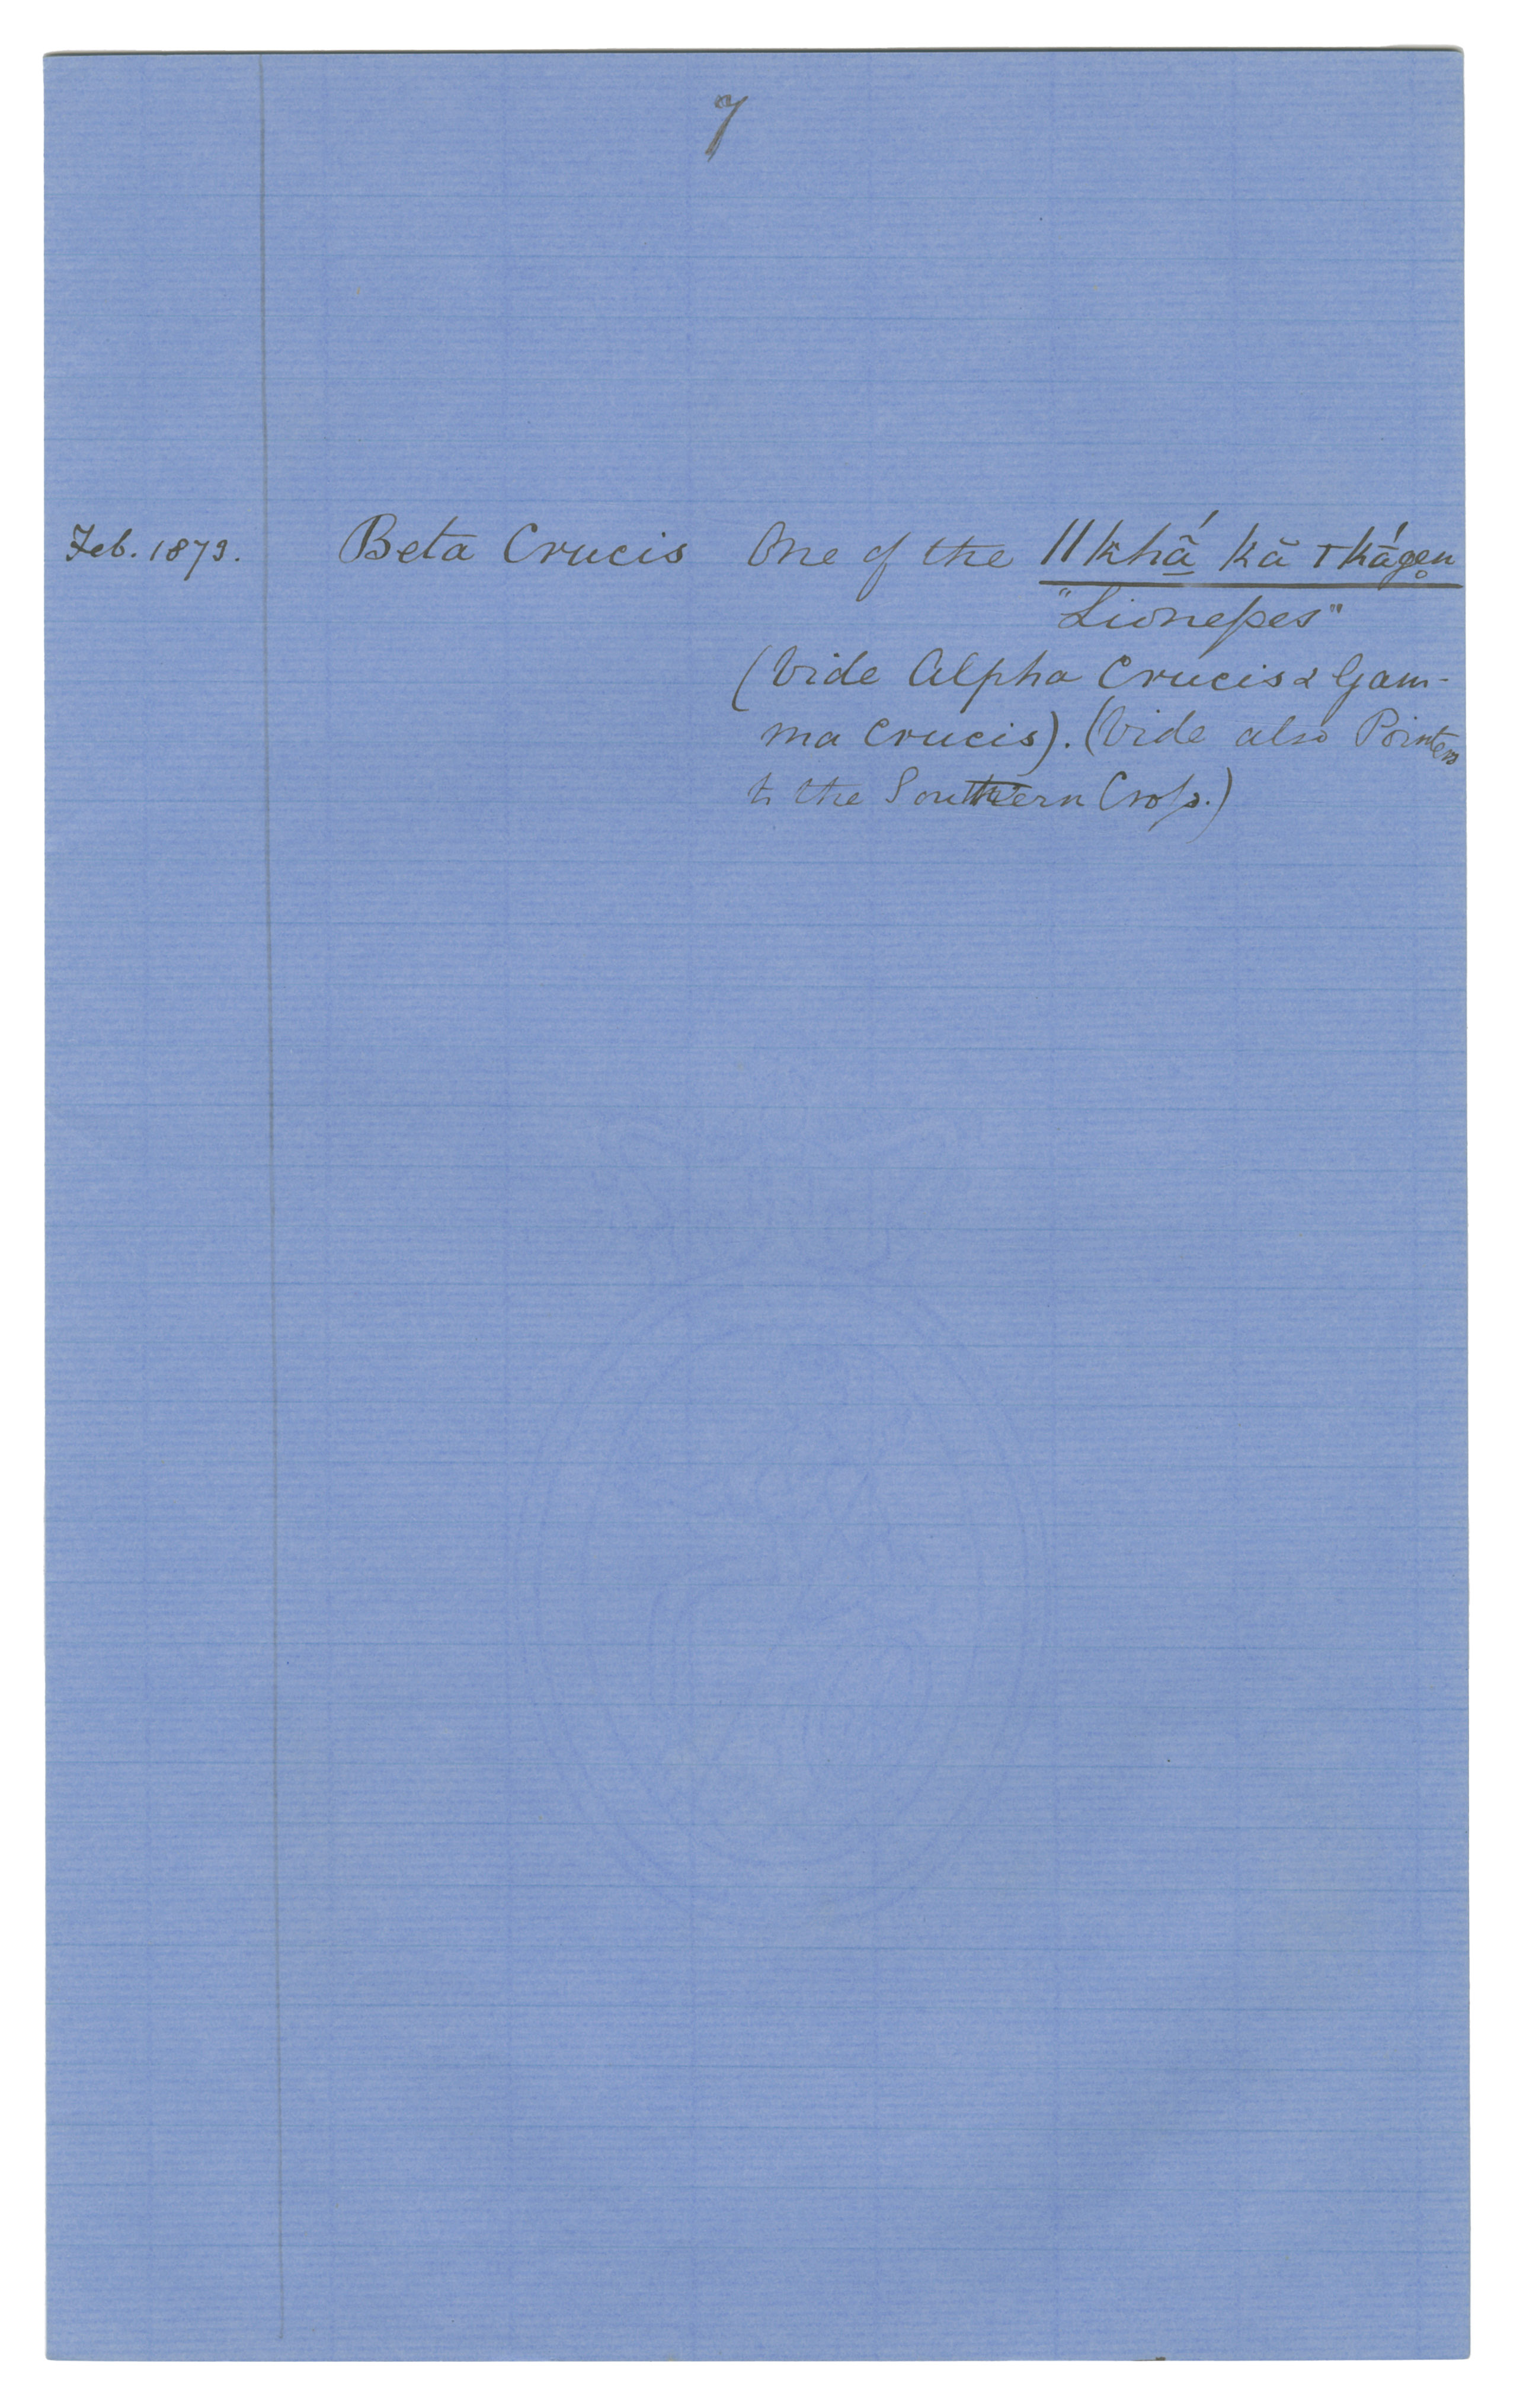 7
Feb. 1873. Beta Crucis One of the ǁkhā́ kā ꞇkágen̥
"Lionesses"
(Vide Alpha Crucis & Gam-
ma Crucis). (Vide also Pointers
to the Southern Cross.)